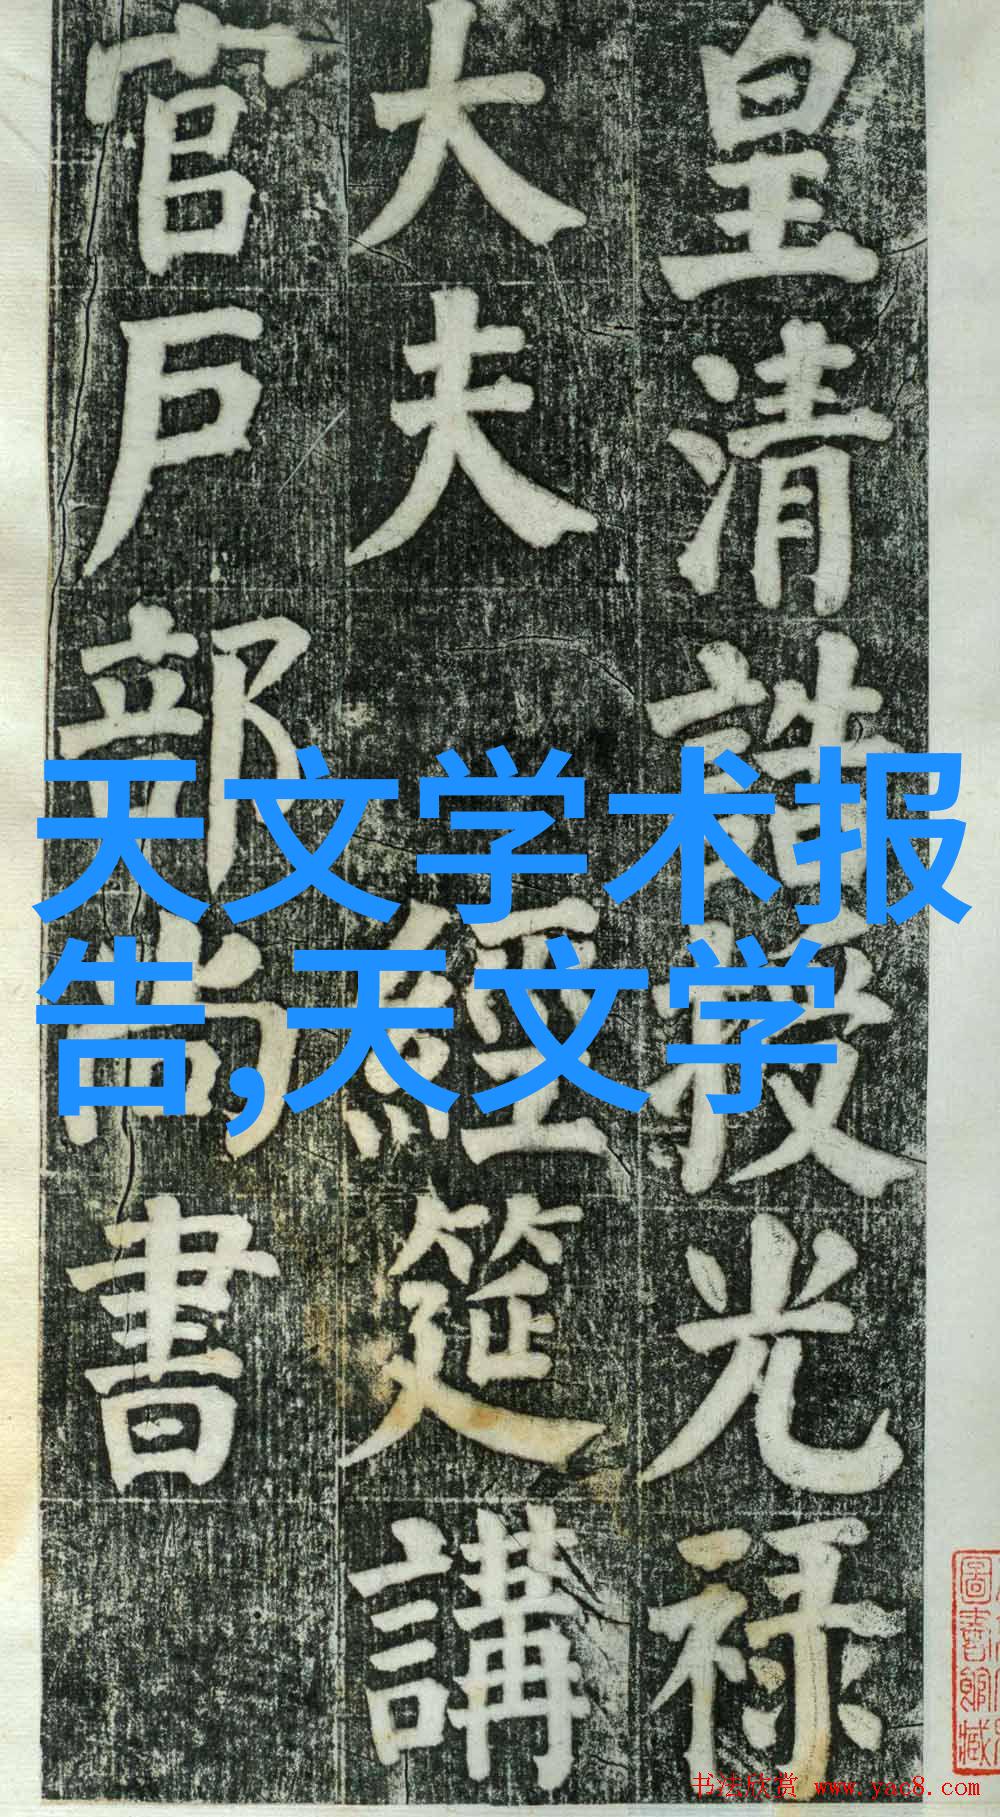 皇清誥授光祿
大夫 經筵講
官戶部尚書
天文学术报
告,天文学
圖書館藏
书法欣赏 www.yac8.com